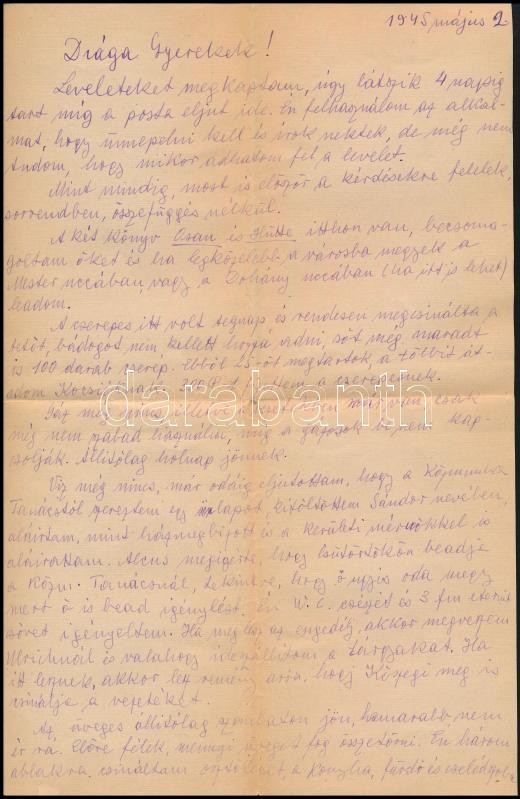 1945 május 2
Drága Gyerekek!
Leveleteket megkaptam, úgy látszik 4 napig
tart míg a posta eljut ide. Én felhasználom az alkal-
mat, hogy ünnepelni kell és írok nektek, de még nem
tudom, hogy mikor adhatom fel a levelet.
Mint mindig, most is először a kérdésekre felelek,
sorrendben, összefüggés nélkül.
A két könyv Osan és Hütte itthon van, becsoma-
goltam őket és ha legközelebb a városba megyek a
Mester uccában, vagy a Dohány uccában (ha itt is lehet)
leadom.
A cserepes itt volt tegnap és rendesen megcsinálta a
tetőt, bádogot nem kellett hozzá adni, sőt még maradt
is 100 darab cserép. Ebből 25-öt megtartok, a többit át-
adom P-t fizettem a cserepesnek.
Gáz még nincs, illetve már van, csak
még nem szabad használni, míg a gázosok be nem kap-
csolják. Állítólag holnap jönnek.
Víz még nincs, már odáig eljutottam, hogy a Közmunka
Tanácstól szereztem egy űrlapot, kitöltöttem Sándor nevében,
aláírtam, mint házmegbízott és a kerületi mérnökkel is
aláírattam. Alcus megígérte, hogy csütörtökön beadja
a Közm. Tanácsnál, tekintve, hogy ő úgyis oda megy
mert ő is bead igénylést. Én W.C. csészét és 3 fm eternit
csövet igényeltem. Ha meg lesz az engedély, akkor megveszem
Ulrichnál és valahogy ideszállítom a tárgyakat. Ha
itt lesznek, akkor lesz remény arra, hogy Kőszegi meg is
csinálja a vezetéket.
Az üveges állítólag szombaton jön, hamarabb nem
ér rá. Előre félek, mennyi üveget fog összetörni. Én három
ablakra csináltam a konyha, fürdő és cselédszoba
darabanth